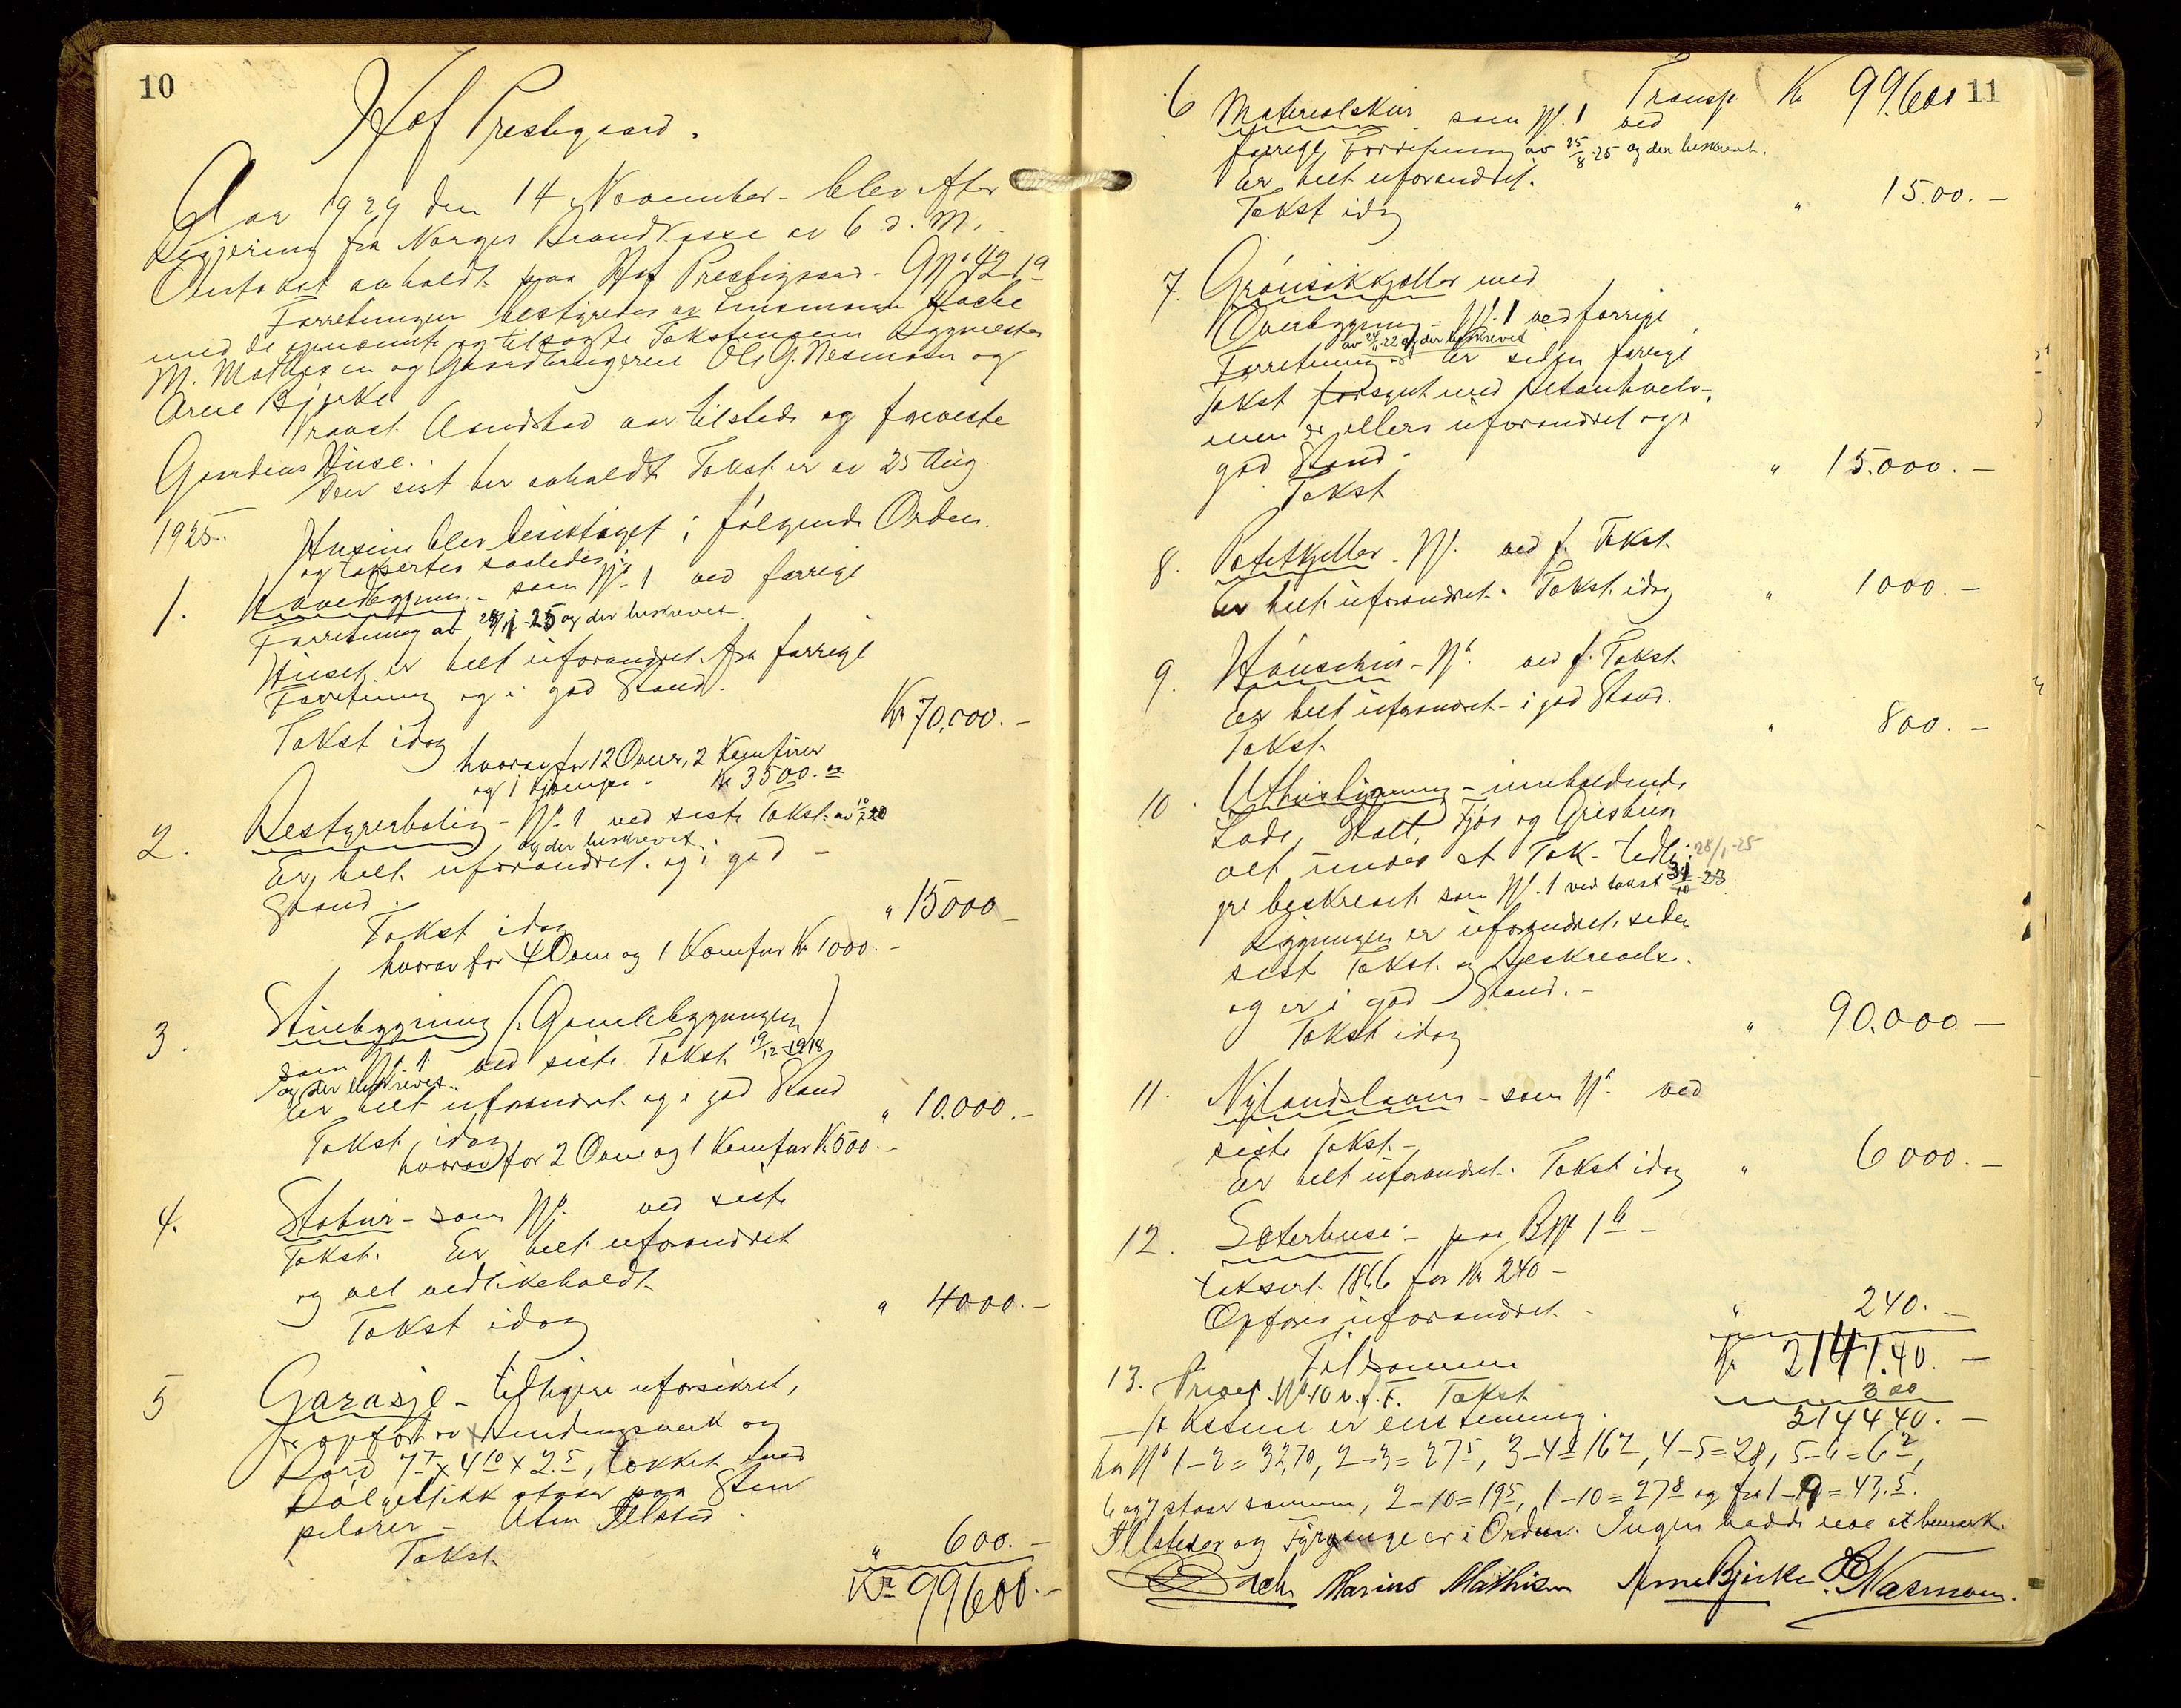 10
Hof Prestegaard.
Aar 1929 den 14 November blev efter
Begjæring fra Norges Brandkasse av 6 d. M.
Omtakst avholdt paa Hof Prestegaard - GNo 42-1a
Forretningen bestyredes av Lensmann
med de opnævnte og tilsagte Takstmænn Bygmester
M. Mathisen og Gaardbrugerne Ole G. Nesmoen og
Arne Bjerke
Provst Aandstad var tilstede og foreviste
Gaardens Huse.
Den sist her avholdt Takst er av 25 Aug.
1925.
Husene blev besiktiget i følgende Orden
og taksertes saaledes:
1. Hovedbygning - som No 1 ved forrige
Forretning av 28/1-25 og der beskrevet
Huset er helt uforandret fra forrige
Forretning og i god Stand.
Takst idag Kr 70,000.-
hvorav for 12 Ovner, 2 Komfurer
og 1 Kr 3500.-
2. Bestyrerbolig - No 1 ved siste Takst av
og der beskrevet.
Er helt uforandret og i god -
Stand.
Takst idag " 15000 -
hvorav for 4 Ovne og 1 Komfur Kr 1000.-
3. Stuebygning (: Gamlebygningen)
som No 1 ved siste Takst 19/12-1918
og der beskrevet.
Er helt uforandret og i god Stand
Takst idag " 10.000.-
hvorav for 2 Ovne og 1 Komfur K. 500.-
4. Stabur - som No ved siste
Takst. Er helt uforandret
og vel vedlikeholdt
Takst idag " 4000.-
5 Garasje - tidligere uforsikret,
er opført av Bindingsverk og
Bord 7 x 4 10 x 2.5, tækket med
Bølgeblikk staar paa Sten
pelarer - Uten Ildsted.
Takst " 600.-
Kr 99600.-
11
Transp. Kr 99.600
6 Materialskur som No. 1 ved
forrige Forretning av 25/8-25 og der beskrevet.
Er helt uforandret.
Takst idag " 1500.-
7. Grønsakkjeller med
Overbygning - No. 1 ved forrige
av 24/11-22 og der beskrevet
Forretning Er siden forrige
Takst forsynt med Betonhvelv -,
men er ellers uforandret og i
god Stand.
Takst " 15.000.-
8. Potetkjeller - No. ved f. Takst.
Er helt uforandret. Takst idag " 1000.-
9. Hønsehus - No. ved f. Takst.
Er helt uforandret - i god Stand.
Takst. " 800.-
10. Uthusbygning - inneholdende
Lade, Stall, Fjøs og Grishus,
alt under et Tak - tidli- 28/1-25
gre beskrevet som No. 1 ved takst 31/10-23
Bygningen er uforandret siden
sist Takst og Beskrivelse.
og er i god Stand. -
Takst idag " 90.000 -
11. Nylandslaaven - som No. ved
siste Takst -
Er helt uforandret. Takst idag " 6000.-
12. Sæterhuse - paa BNo 1b -
taksert 1866 for Kr 240 -
Opføres uforandret - " 240.-
Tilsammen Kr 2141.40.-
13. Privet No 10 v. f. F. Takst 300
Taksten er enstemmig. 214440.-
Fra No 1-2 = 32,70, 2-3 = 27 5, 3-4 = 16 2, 4-5 = 28, 5-6 = 6 2,
6 og 7 staar sammen, 2-10 = 19 5, 1-10 = 27 8 og fra 1-9 = 43.5.
Ildsteder og Fyrgange er i Orden. Ingen hadde noe at bemerk.
Marius Mathisen Arne Bjerke O. Nesmoen.